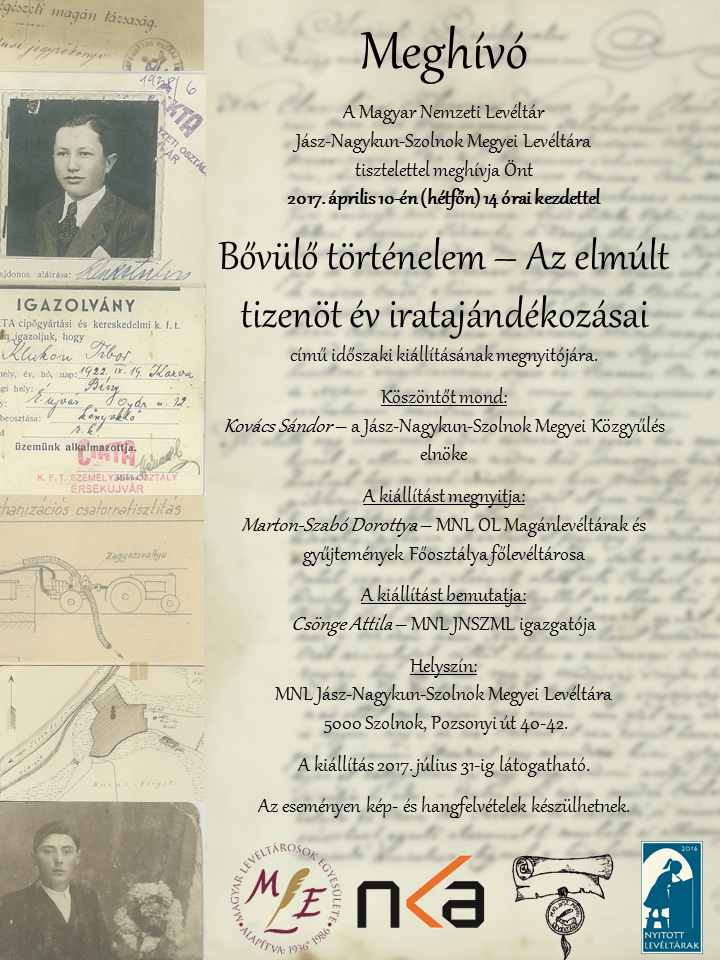 Meghívó
A Magyar Nemzeti Levéltár
Jász-Nagykun-Szolnok Megyei Levéltára
tisztelettel meghívja Önt
2017. április 10-én (hétfőn) 14 órai kezdettel
Bővülő történelem – Az elmúlt
tizenöt év iratajándékozásai
című időszaki kiállításának megnyitójára.
Köszöntőt mond:
Kovács Sándor – a Jász-Nagykun-Szolnok Megyei Közgyűlés
elnöke
A kiállítást megnyitja:
Marton-Szabó Dorottya – MNL OL Magánlevéltárak és
gyűjtemények Főosztálya főlevéltárosa
A kiállítást bemutatja:
Csönge Attila – MNL JNSZML igazgatója
Helyszín:
MNL Jász-Nagykun-Szolnok Megyei Levéltára
5000 Szolnok, Pozsonyi út 40-42.
A kiállítás 2017. július 31-ig látogatható.
Az eseményen kép- és hangfelvételek készülhetnek.
magán társaság.
jegyzőkönyv
1938/6
aláírása:
IGAZOLVÁNY
cipőgyártási és kereskedelmi k. f. t.
igazoljuk, hogy
Klukon Tibor
hely, év, hó, nap: 1922. IX. 19. Karva
hely: Bény
Érsekujvár
beosztása:
üzemünk alkalmazottja.
CIKTA
K. F. T. SZEMÉLYZETI OSZTÁLY
ÉRSEKUJVÁR
csatornatisztitás
Zagyvaszivattyu
MAGYAR LEVÉLTÁROSOK EGYESÜLETE
MLE
ALAPÍTVA: 1936 1986
nka
2016
NYITOTT
LEVÉLTÁRAK